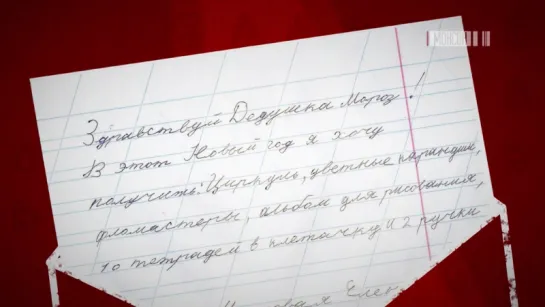 Здравствуй Дедушка Мороз!
В этот Новый год я хочу
получить: Циркуль, цветные карандаши,
фломастеры, альбом для рисования,
10 тетрадей в клеточку и 2 ручки